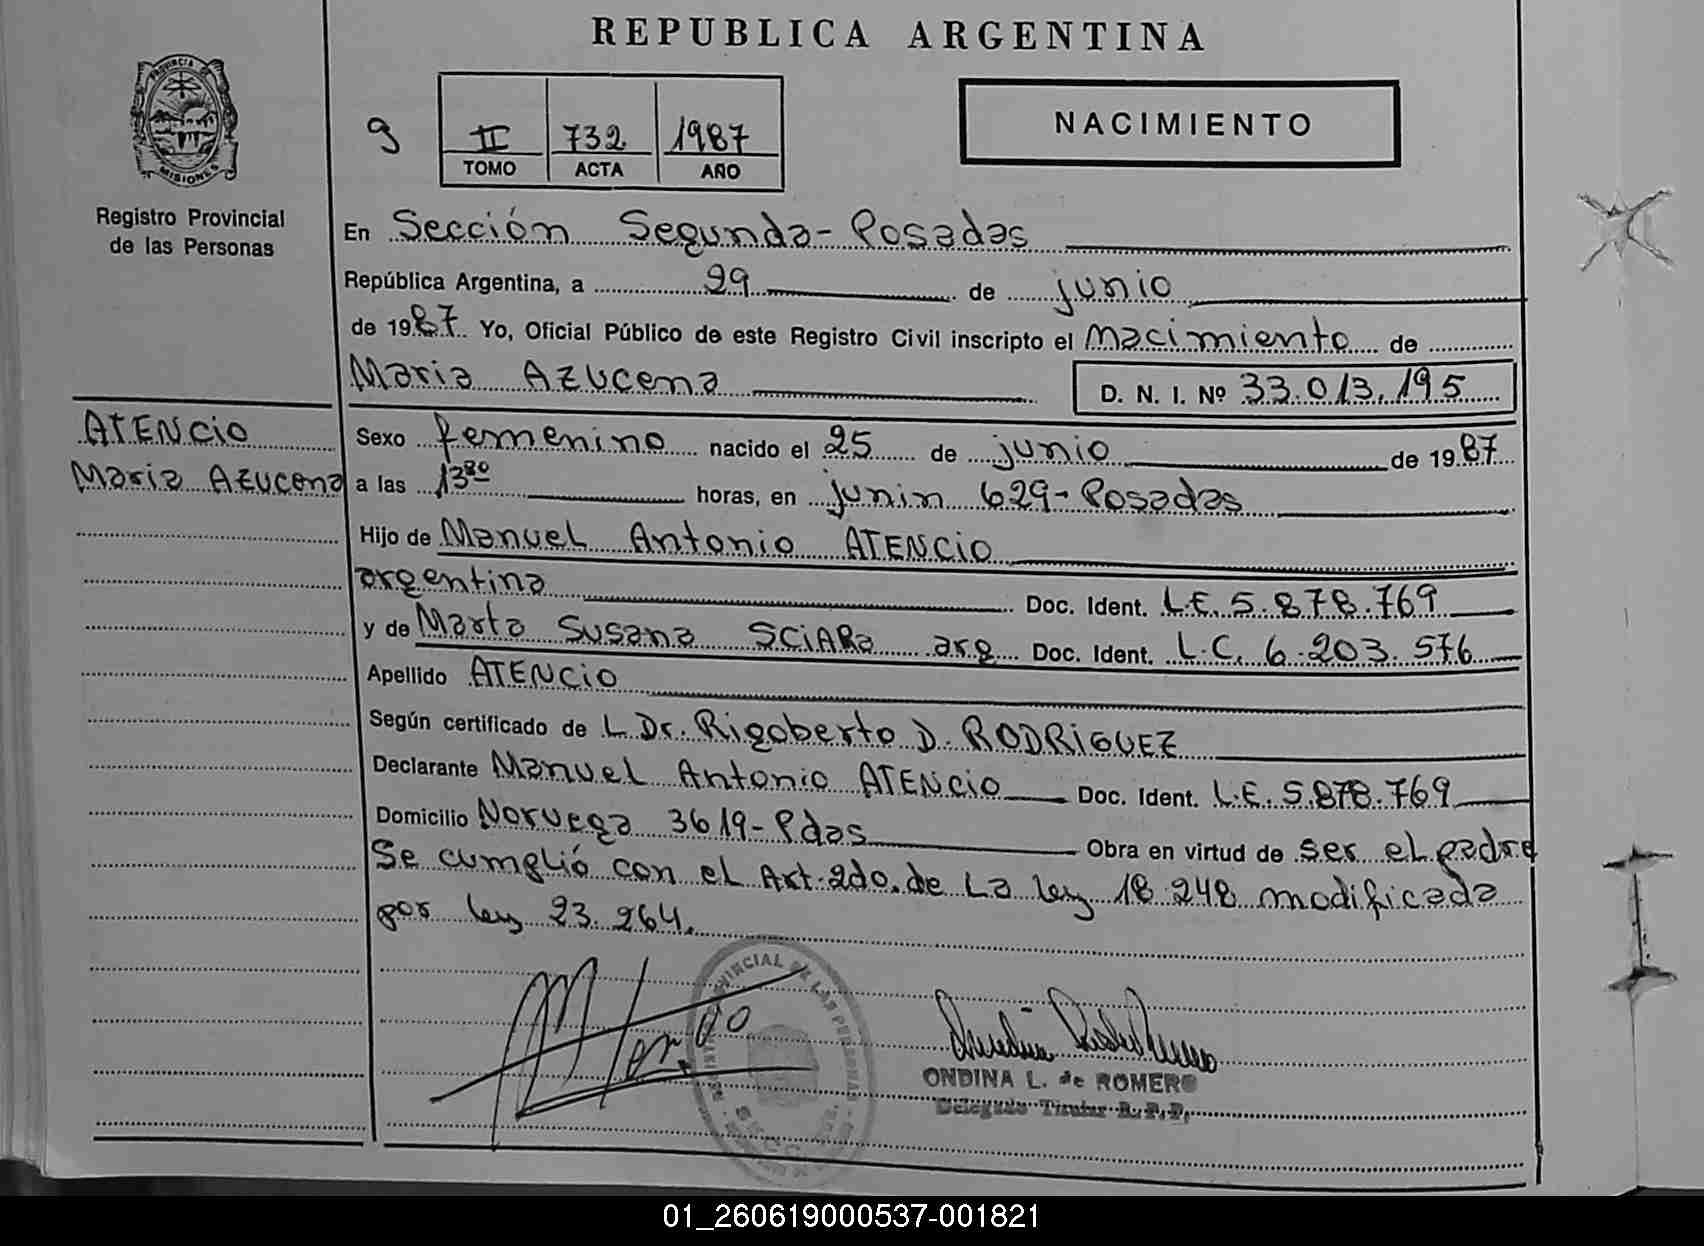 REPUBLICA ARGENTINA
PROVINCIA DE
MISIONES
Registro Provincial
de las Personas
9
II 732 1987
TOMO ACTA AÑO
NACIMIENTO
En Sección Segunda - Posadas
República Argentina, a 29 de junio
de 1987 Yo, Oficial Público de este Registro Civil inscripto el nacimiento de
Maria Azucena D. N. I. Nº 33.013.195
ATENCio
Maria Azucena
Sexo femenino nacido el 25 de junio de 1987
a las 13³⁰ horas, en junin 629 - Posadas
Hijo de Manuel Antonio ATENCio
argentina Doc. Ident. L.E. 5.878.769
y de Marta Susana SCiARa arg Doc. Ident. L.C. 6.203.576
Apellido ATENCio
Según certificado de L Dr. Rigoberto D. RODRiGUEZ
Declarante Manuel Antonio ATENCio Doc. Ident. L.E. 5.878.769
Domicilio Noruega 3619 - Pdas Obra en virtud de ser el padre
Se cumplió con el Art. 2do. de La ley 18.248 modificada
por ley 23.264.
ONDINA L. de ROMERO
Delegado Titular R. P. P.
01_260619000537-001821